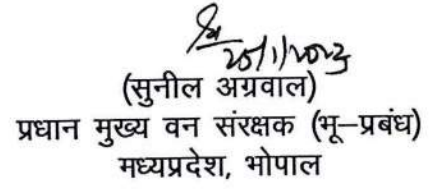 20/1/2023
(सुनील अग्रवाल)
प्रधान मुख्य वन संरक्षक (भू–प्रबंध)
मध्यप्रदेश, भोपाल